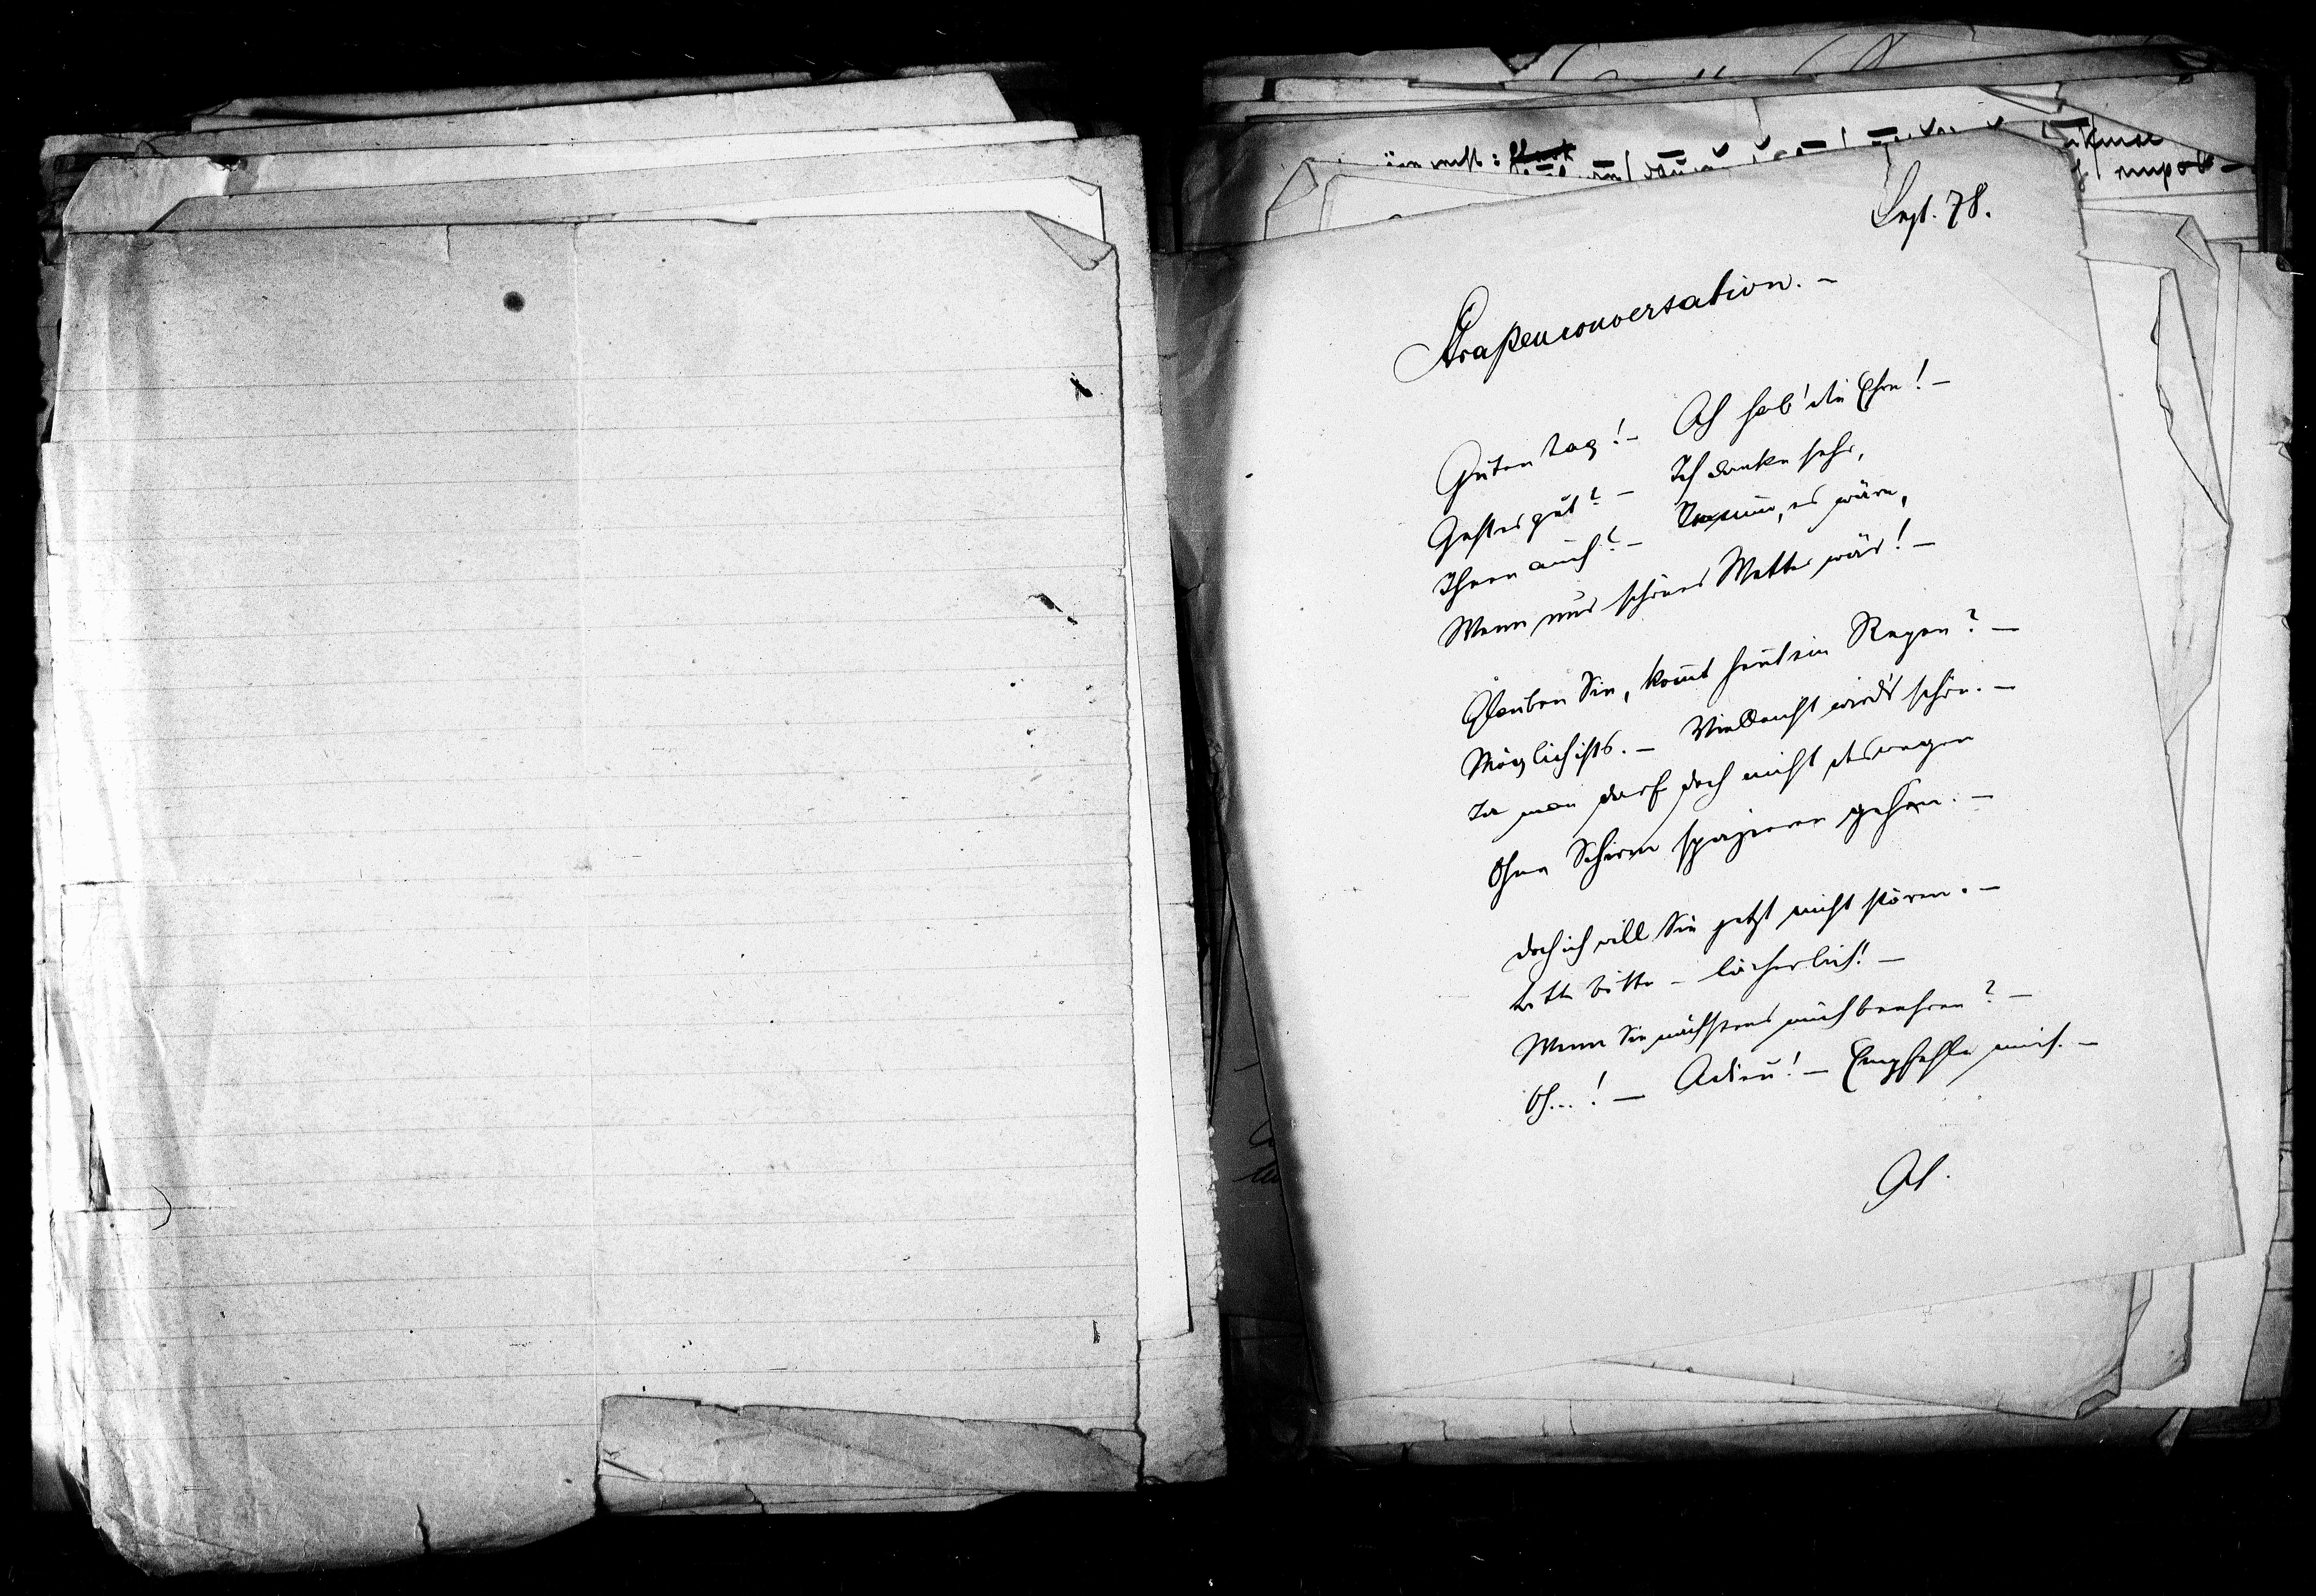 Sept. 78.
Straßenconversation. –
Guten Tag! – Ah hab' die Ehre! –
Geht es gut? – Ich danke sehr,
Ihnen auch? – es wäre,
Wenn nur schönes Wetter wär! –
Glauben Sie, kom̄t heut ein Regen? –
Möglich ists. – Vielleicht wird's schön. –
Ja man darf doch nicht deswegen
Ohne Schirm spazieren gehen. –
Doch ich will Sie jetzt nicht stören. –
Bitte bitte – lächerlich! –
Wenn Sie nächstens mich beehren? –
Oh...! – Adieu! – Empfehle mich. –